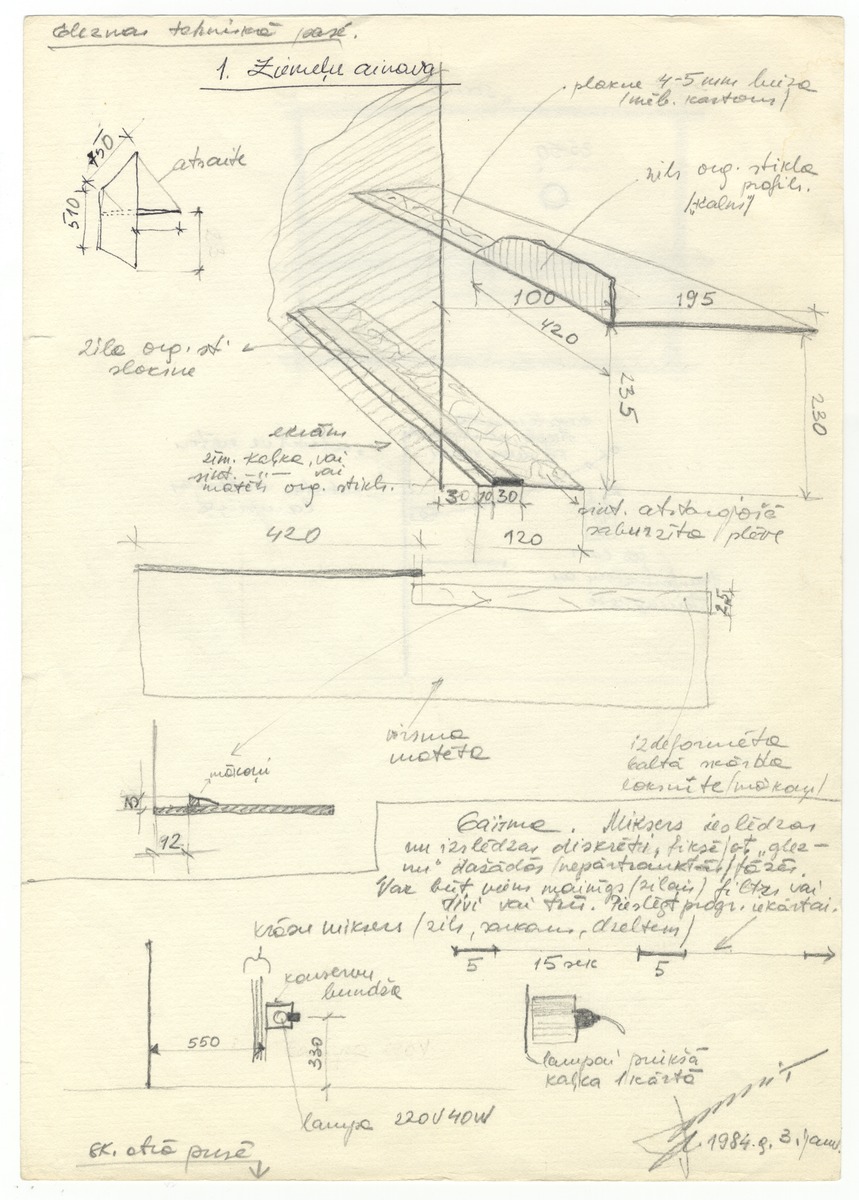 Gleznas tehniskā pasē.
1. Ziemeļu ainava
plakne 4-5 mm bieza
/mēb. kartons/
750
510
atsaite
zils org. stikla
profils.
/"kalns"/
100
195
420
235
230
zila org. st.
plāksne
ekrāns
zīm. kaļķa, vai
sint. —"— vai
matēts org. stikls.
30 10 30
120
sint. atstarojošā
saburzīta plēve
420
25
virsma
matēta
izdeformēta
balta skārda
loksnīte /mākoņi/
mākoņi
12
Gaisma. Mikseris ieslēdzas
un izslēdzas diskrēti, fiksējot "glez-
nu" dažādās /nepārtrauktās/ fāzēs.
Var būt viens mainīgs /zilais/ filtrs vai
divi vai trīs. Pieslēgt progr. iekārtai.
krāsu mikseris /zils, sarkans, dzeltens/
5 15 sek 5
konservu
bundža
550
330
lampa 220V 40W
lampai priekšā
kaļķa 1 kārtā
1984.g. 3. janv.
sk. otrā pusē